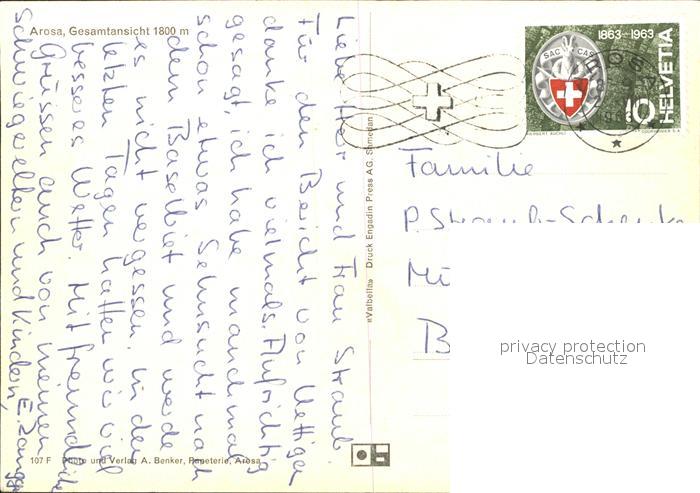 Arosa, Gesamtansicht 1800 m
Liebe Herr und Frau Straub.
Für den Bericht von Uettigen
danke ich vielmals. Aufrichtig
gesagt, ich habe manchmal
schon etwas Sehnsucht nach
dem Baselbiet und werde
es nicht vergessen. In den
letzten Tagen hatten wir viel
besseres Wetter. Mit freundlichen
Grüssen auch von meinen
Schwiegereltern und Kindern,
E. Zaugg
107 F Photo und Verlag A. Benker, Papeterie, Arosa
«Valbella» Druck Engadin Press AG. Samedan
1863-1963
SAC CAS
HELVETIA
10
AROSA
Familie
P. Straub-Schenk
privacy protection
Datenschutz